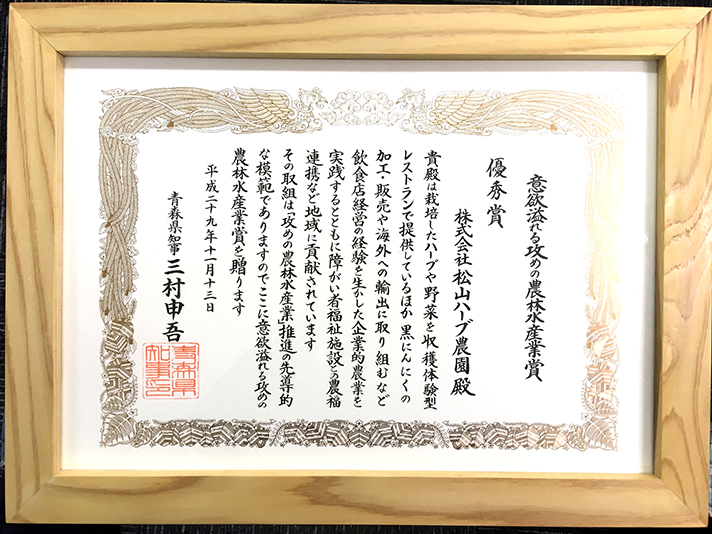 意欲溢れる攻めの農林水産業賞
優秀賞
株式会社 松山ハーブ農園 殿
貴殿は栽培したハーブや野菜を収穫体験型
レストランで提供しているほか 黒にんにくの
加工・販売や海外への輸出に取り組むなど
飲食店経営の経験を生かした企業的農業を
実践するとともに障がい者福祉施設との農福
連携など地域に貢献されています
その取組は「攻めの農林水産業」推進の先導的
な模範でありますのでここに意欲溢れる攻めの
農林水産業賞を贈ります
平成二十九年十一月十三日
青森県知事 三村申吾
青森県
知事印